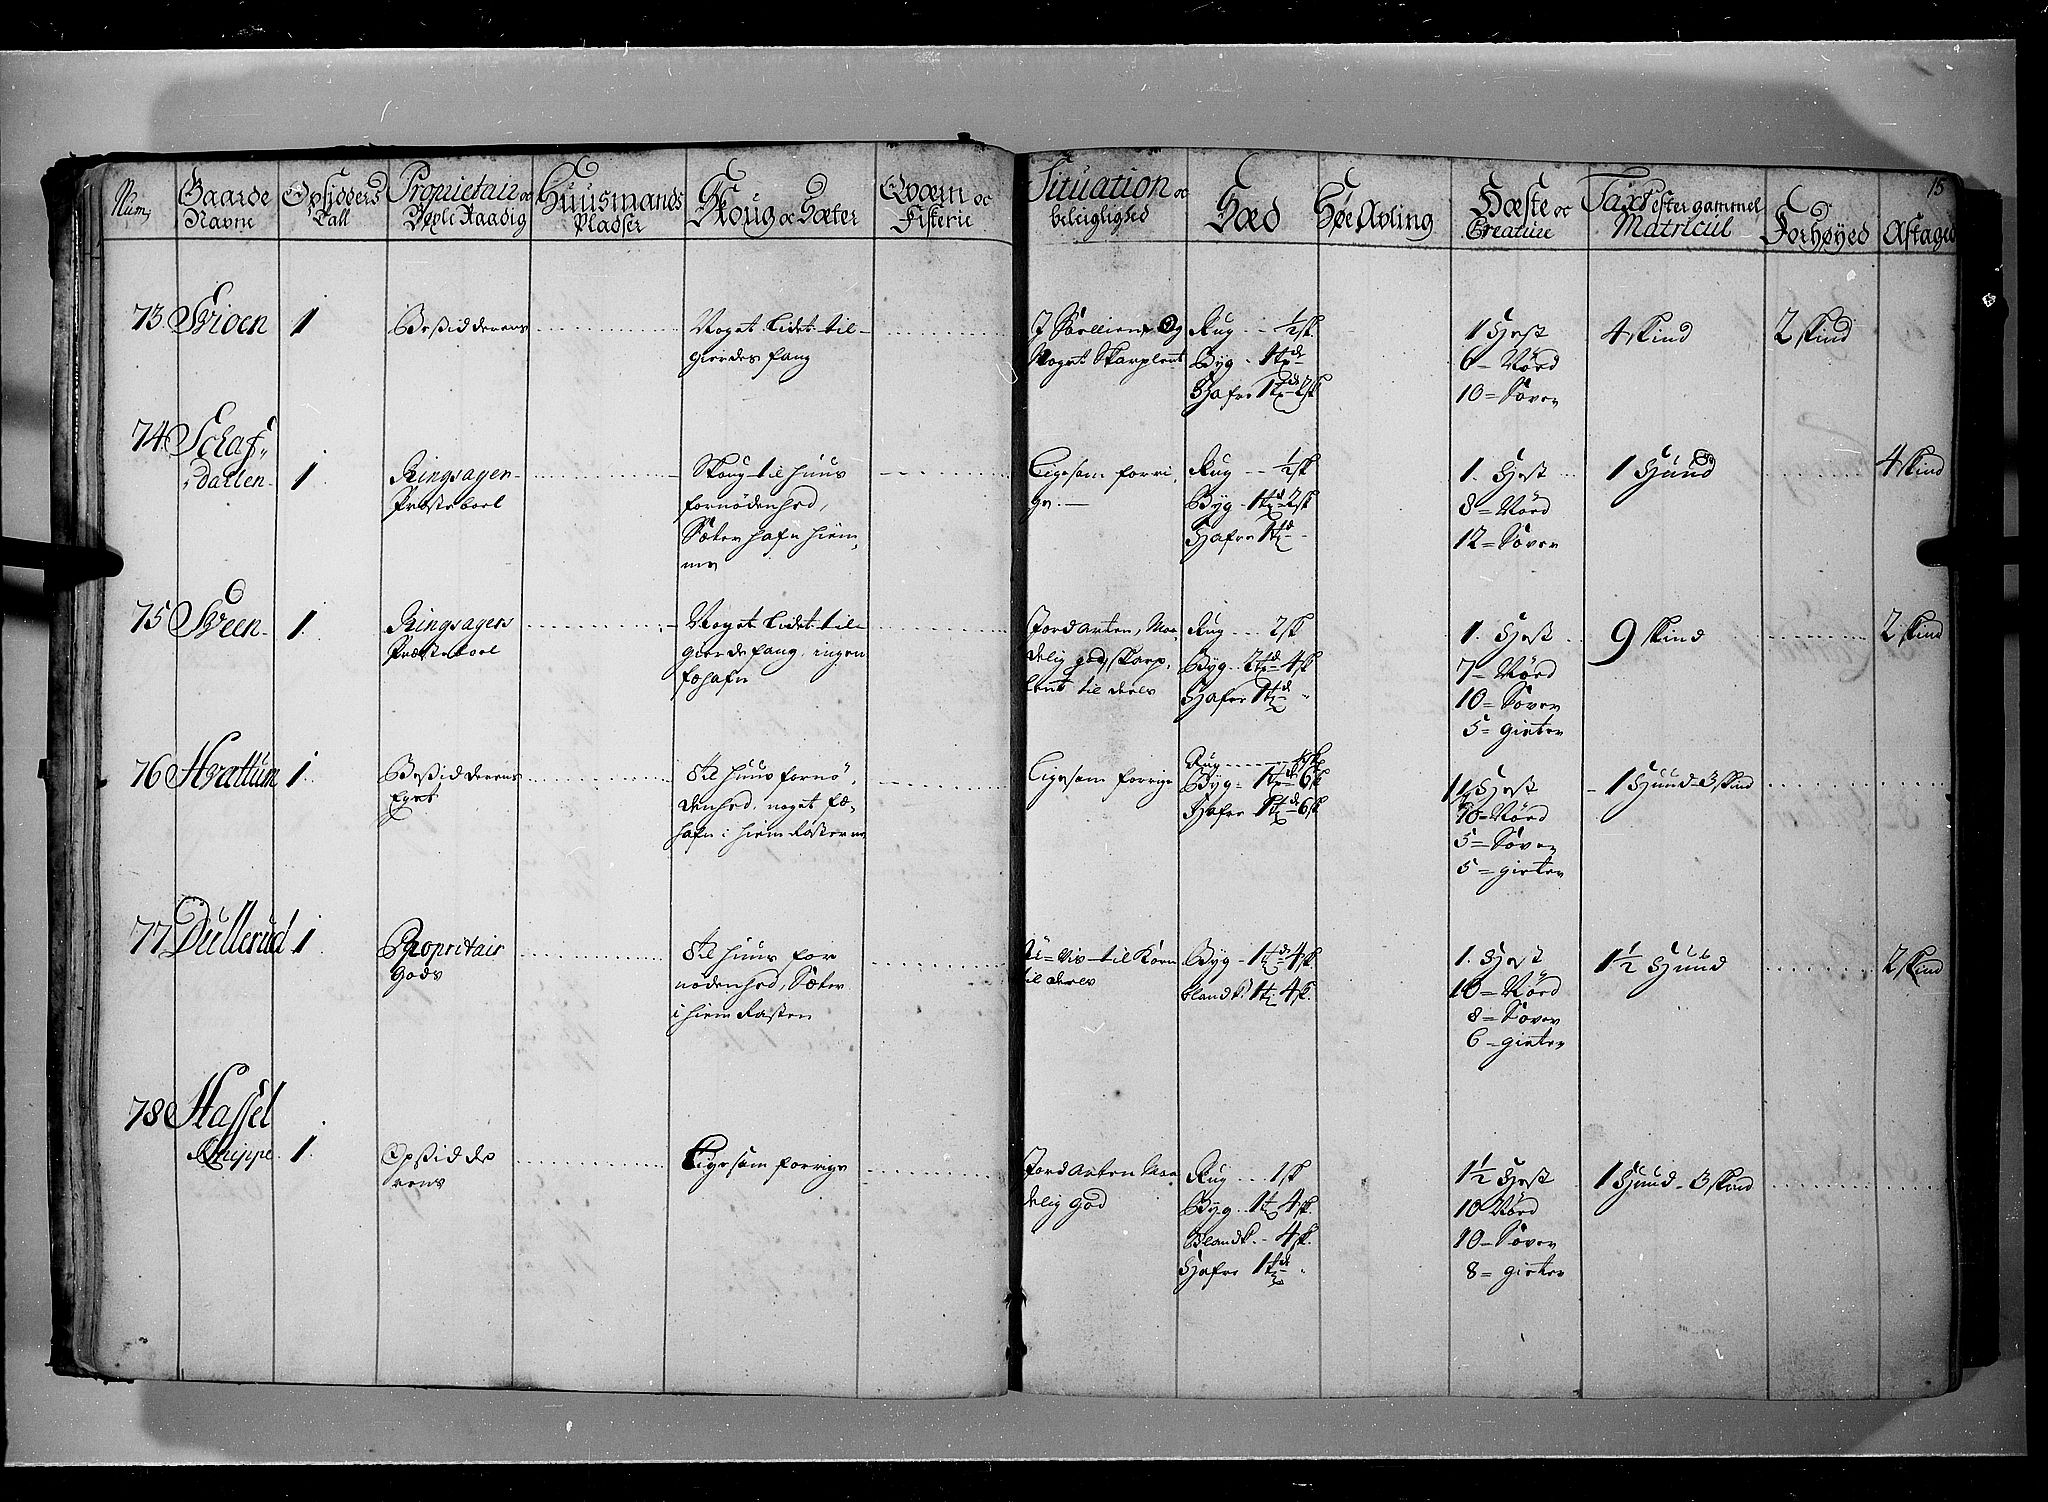 15
Num,
Gaarde
Navne
Opsidders
Tall
Proprietair oc
Böxle Raadig
Huusmands
Pladser
Skoug oc Sæter
Qværn oc
Fiskerie
Situation oc
beleiglighed
Sæd
Høe Avling
Hæste oc
Creature
Taxt efter gammel
Matricul
Forhøyed
Aftaged
73. 1 Besidderens
Noget lidet til-
gierdes fang
Noget Skarplent
Rug - - ½ sk.
Byg - 1 td
Hafre 1 td 2 sk
1 Hest
6 - Nöed
10 = Söver
4 skind
2 skind
74 Schaf-
dallen 1 Ringsager
Præsteboel
Skoug til huus
fornödenhed,
Sæter hafn hiem-
me
Ligesom forri-
ge. -
Rug - - ½ sk
Byg - 1 td 2 sk
Hafre 1 td
1. Hest
8 = Nöed
12 = Söver
1 Huud
4 skind
75 Sveen 1. Ringsagers
Præsteboel
Noget lidet til-
gierdefang, ingen
føhafn
Jordarten, Maa-
delig god, skarp-
lent til deels
Rug - - - 2 sk
Byg - 2 td 4 sk
Hafre 1 td "
1. Hest
7 - Nöed
10 = Söver
5 = gieeter
9 skind
2 skind
76 Hvattum 1. Besidderens
Eget
Til huus fornö-
denhed, noget fæ-
hafn i hiem Raster
Ligesom forrige
Rug
Byg = 1 td 6 sk
Hafre 1 td 6 sk
Hest
10 - Nöed
5 = Söver
5 - gieeter
1 Huud - 3 skind
77 Dullerud 1. Proprietair
Gods
Til huus for
nödenhed, Sæter
i hiem Rasten
til Korn
til deels
Byg - 1 td 4 sk.
blandk. 1 td 4 sk.
1. Hest
10 = Nöed
8 = Söver
6 - gieeter
1½ Huud
2 skind
78 Hassel
Knippe 1. Opsidde
rens
Ligesom forrige
Jordarten Maa-
delig God
Rug - - - 1 sk
Byg - 1 td 4 sk.
Blandk. - 4 sk.
Hafre 1 td "
1½ Hest
10 Nöed
10 - Söver
8 = gieeter
1 Huud - 3 skind